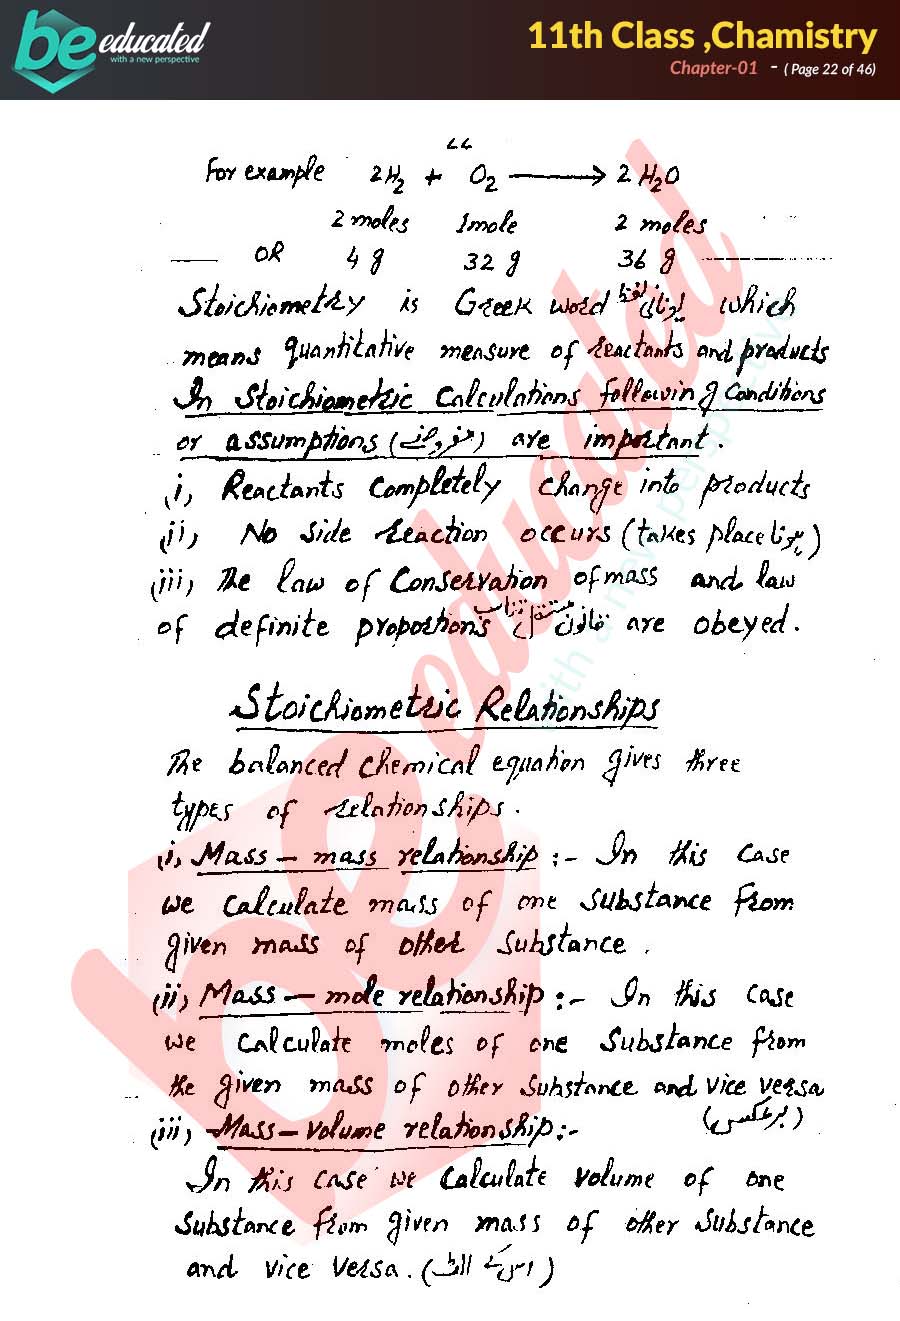 be educated
with a new perspective
11th Class ,Chamistry
Chapter-01 - ( Page 22 of 46)
22
For example 2H₂ + O₂ ⟶ 2 H₂O
2 moles 1mole 2 moles
OR 4 g 32 g 36 g
Stoichiometry is Greek word یونانی لفظ which
means quantitative measure of reactants and products
In Stoichiometric Calculations following Conditions
or assumptions (مفروضے) are important.
(i) Reactants Completely Change into products
(ii) No side reaction occurs (takes place ہونا)
(iii) The law of Conservation of mass and law
of definite proportions قانون مستقل تناسب are obeyed.
Stoichiometric Relationships
The balanced chemical equation gives three
types of relationships.
(i) Mass – mass relationship :- In this case
we calculate mass of one substance from
given mass of other substance.
(ii) Mass – mole relationship :- In this case
we calculate moles of one substance from
the given mass of other substance and vice versa
(برعکس)
(iii) Mass – volume relationship :-
In this case we calculate volume of one
substance from given mass of other substance
and vice versa. (اس کے الٹ)
be educated